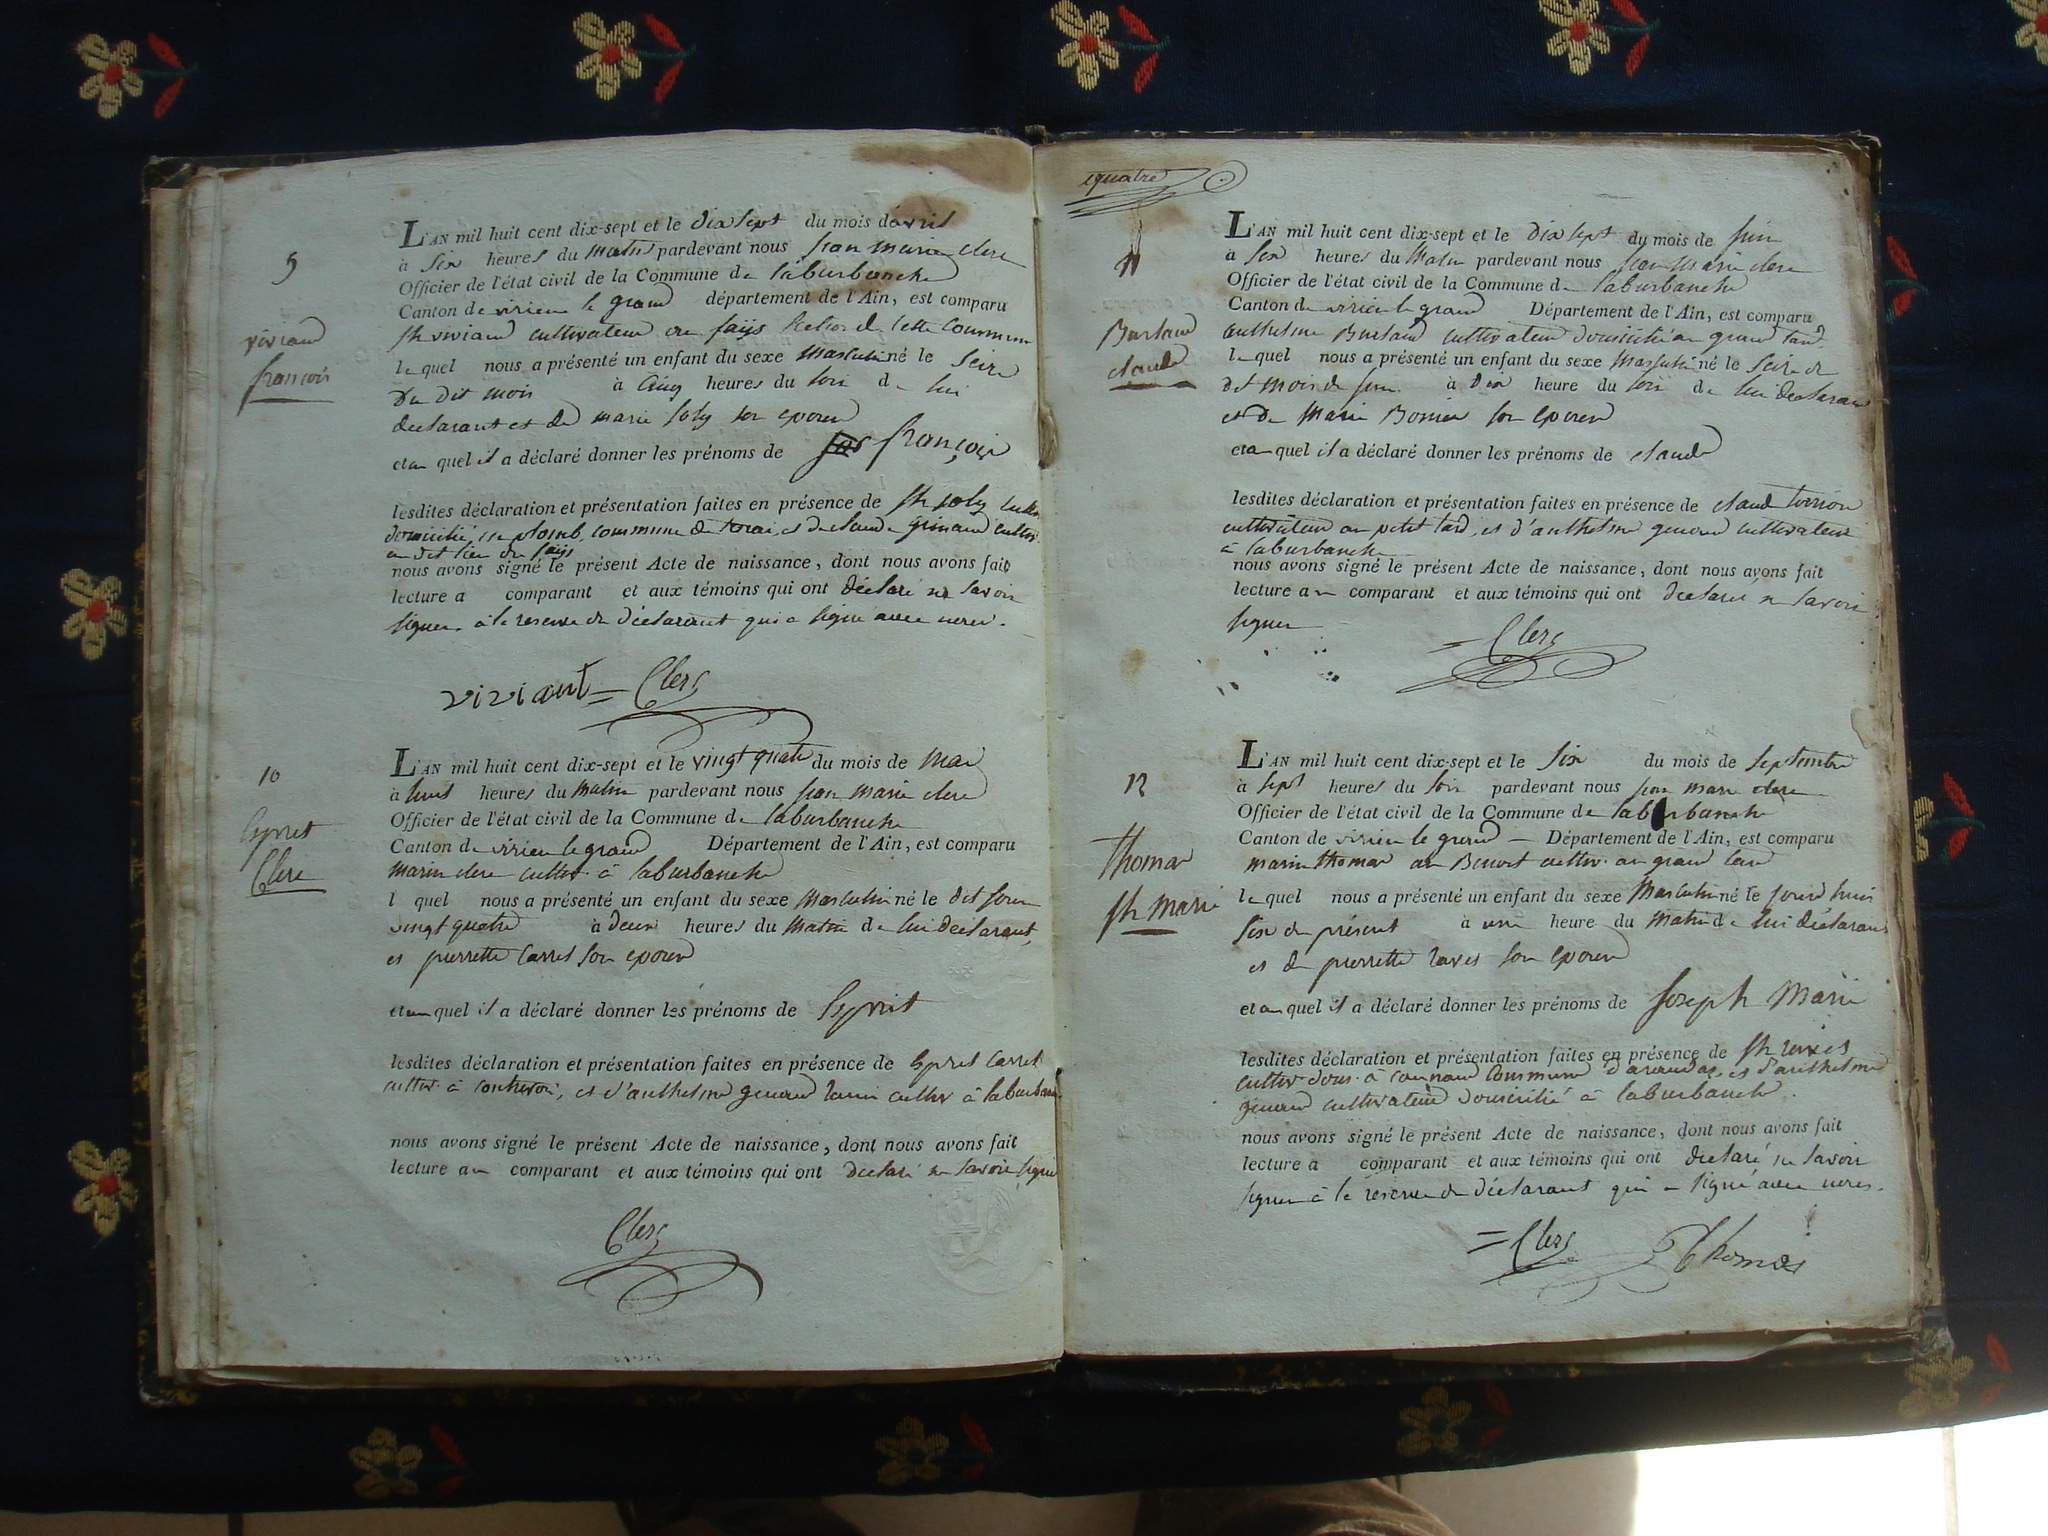 9
viviand
françois
L'AN mil huit cent dix-sept et le dix sept du mois d'avril
à six heures du matin pardevant nous jean marie clerc
Officier de l'état civil de la Commune de laburbanche
Canton de virieu le grand département de l'Ain, est comparu
jh viviand cultivateur au faÿs de cette commune
le quel nous a présenté un enfant du sexe masculin né le seize
du dit mois à cinq heures du soir de lui
declarant et de marie joly son epouse
et au quel il a déclaré donner les prénoms de françois
lesdites déclaration et présentation faites en présence de jh joly
domicilié commune de et de claude grinand cultiv.
au dit lieu du faÿs
nous avons signé le présent Acte de naissance, dont nous avons fait
lecture a comparant et aux témoins qui ont déclaré ne savoir
signer, à la reserve du déclarant qui a signé avec nous.
viviant = Clerc
10
Esprit
Clerc
L'AN mil huit cent dix-sept et le vingt quatre du mois de mai
à huit heures du matin pardevant nous jean marie clerc
Officier de l'état civil de la Commune de laburbanche
Canton de virieu le grand Département de l'Ain, est comparu
marin clerc cultiv. à laburbanche
l quel nous a présenté un enfant du sexe masculin né le dit jour
vingt quatre à deux heures du matin de lui déclarant,
et pierrette carret son epouse
et au quel il a déclaré donner les prénoms de Esprit
lesdites déclaration et présentation faites en présence de Esprit carret
cultiv. à et d'anthelme cultiv à laburbanche
nous avons signé le présent Acte de naissance, dont nous avons fait
lecture au comparant et aux témoins qui ont déclaré ne savoir signer
Clerc
quatre
11
Burtaud
claude
L'AN mil huit cent dix-sept et le dix sept du mois de juin
à six heures du matin pardevant nous jean marie clerc
Officier de l'état civil de la Commune de laburbanche
Canton de virieu le grand Département de l'Ain, est comparu
anthelme Burtaud cultivateur domicilié au grand tard
le quel nous a présenté un enfant du sexe masculin né le seize du
dit mois de juin à dix heure du soir de lui déclarant
et de marie Bonier son epouse
et au quel il a déclaré donner les prénoms de claude
lesdites déclaration et présentation faites en présence de claude
cultivateur au petit tard, et d'anthelme cultivateur
à laburbanche
nous avons signé le présent Acte de naissance, dont nous avons fait
lecture au comparant et aux témoins qui ont déclaré ne savoir
signer
= Clerc
12
Thomas
jh marie
L'AN mil huit cent dix-sept et le six du mois de septembre
à sept heures du soir pardevant nous jean marie clerc
Officier de l'état civil de la Commune de laburbanche
Canton de virieu le grand – Département de l'Ain, est comparu
marin thomas cultiv. au grand tard
le quel nous a présenté un enfant du sexe masculin né le jourd'huis
six du présent à une heure du matin de lui déclarant
et de pierrette son epouse
et au quel il a déclaré donner les prénoms de Joseph Marie
lesdites déclaration et présentation faites en présence de jh
cultiv. dom. à commune d'arandas, et d'anthelme
cultivateur domicilié à laburbanche.
nous avons signé le présent Acte de naissance, dont nous avons fait
lecture a comparant et aux témoins qui ont déclaré ne savoir
signer à la reserve du déclarant qui a signé avec nous.
= Clerc Thomas